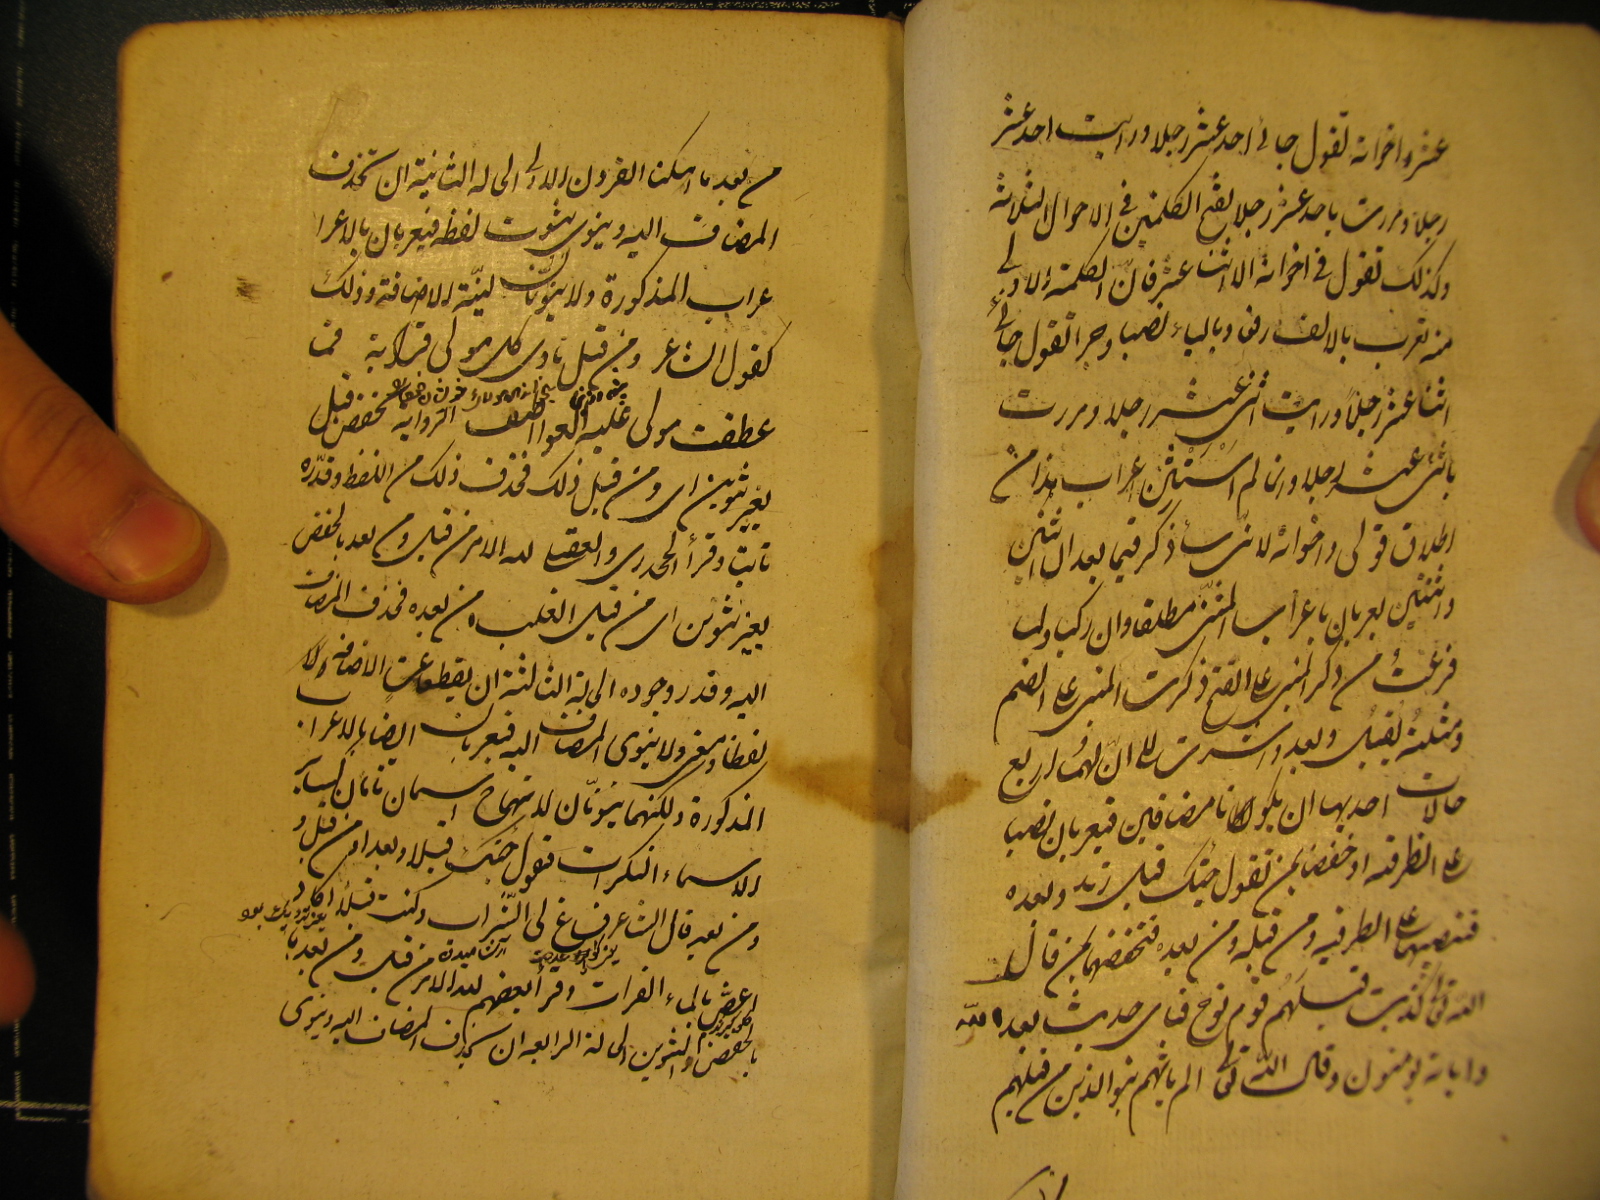 عشر واخواته تقول جائنی احد عشر رجلا ورایت احد عشر
رجلا ومررت باحد عشر رجلا بفتح الکلمتین فی الاحوال الثلاثة
وکذلک تقول فی اخواته الا اثنا عشر فانّ الکلمة الاولی
منه تعرب بالالف رفعا وبالیاء نصبا وجرا تقول جائنی
اثنا عشر رجلا ورایت اثنی عشر رجلا ومررت
باثنی عشر رجلا وانما لم استثن اعراب هذا من
اطلاق قولی واخواته لانّی سأذکر فیما بعد ان اثنین
واثنتین یعربان باعراب المثنّی مطلقا وان رکبا ولما
فرغتُ من ذکر المبنی علی الفتح ذکرت المبنی علی الضم
ومثلته بقبل وبعد واشرت الی انّ لهما اربع
حالات احدیها ان یکونا مضافین فیعربان نصبا
علی الظرفیة او خفضا بمن تقول جئتک قبل زید وبعده
فتنصبهما علی الظرفیة ومن قبله ومن بعده فتخفضهما بمن قال
الله تعالی کذبت قبلهم قوم نوح فبای حدیث بعد الله
وایاته یؤمنون وقال الله تعالی الم یاتهم نبؤ الذین من قبلهم
من بعد ما اهلکنا القرون الاولی الحالة الثانیة ان تحذف
المضاف الیه وینوی ثبوت لفظه فیعربان بالاعرا
عراب المذکورة ولا ینوّنان لنیّة الاضافة وذلک
کقول الشاعر ومن قبل نادی کل مولی قرابة فما
عطفت مولی علیه العواطف الروایة بخفض قبل
بغیر تنوین ای ومن قبل ذلک فحذف ذلک من اللفظ وقدّره
ثابتا وقرأ الجحدری والعقیلی لله الامر من قبل ومن بعد بالخفض
بغیر تنوین ای من قبل الغلب ومن بعده فحذف المضاف
الیه وقدر وجوده الحالة الثالثة ان یقطعا عن الاضافة
لفظا ومعنی ولا ینوی المضاف الیه فیعربان ایضا بالاعراب
المذکورة ولکنهما ینوّنان لانهما ح اسمان تامّان کسایر
الاسماء النکرات تقول جئتک قبلا وبعدا ومن قبل و
ومن بعد قال الشاعر فساغ لی الشّراب وکنت قبلا اکاد
اغصّ بالماء الفرات وقرأ بعضهم لله الامر من قبل ومن بعد با
بالخفض والتنوین الحالة الرابعة ان یحذف المضاف الیه وینوی